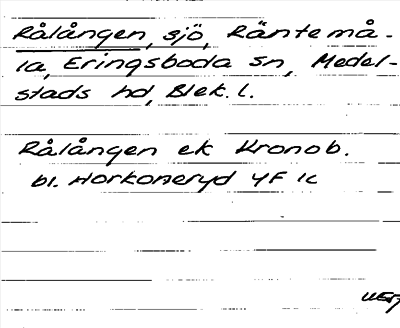 Rålången, sjö, Räntemå-
la, Eringsboda sn, Medel-
stads hd, Blek. l.
Rålången ek Kronob.
bl. Horkoneryd 4F 1c